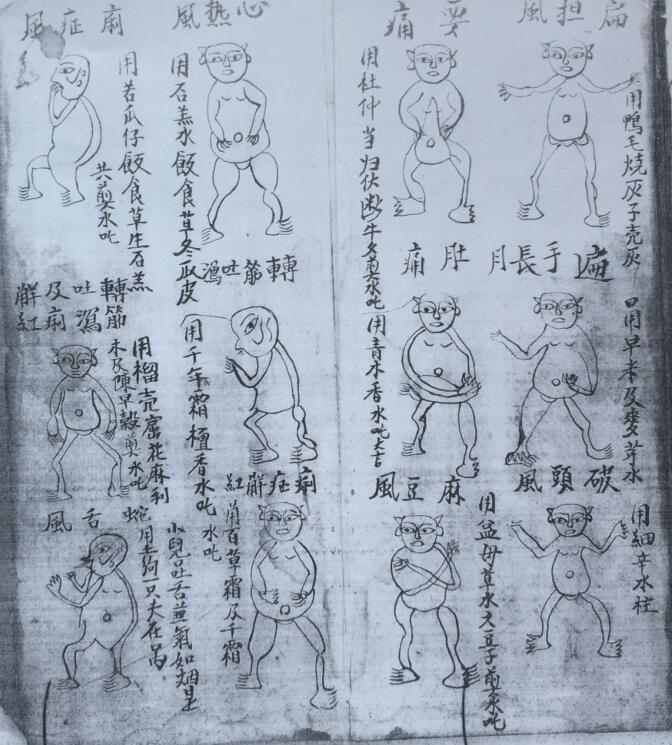 扁担風
用鴨毛燒灰子壳灰
要痛
用杜仲当归伏断牛夕煎水吃
遍手長月
口用早禾及麥芽水
肚痛
用青木香水吃吉
破頭風
用細辛水柱
麻豆風
用益母草水大豆子煎水吃
心热風
用石羔水飯食草冬瓜皮
痢症風
用苦瓜仔飯食草生石羔
共煎水吃
轉筋吐瀉
用千年霜檀香水吃
轉筋
吐瀉
及痢
觧紅
用榴壳窑花麻利
未及陳早穀煎水吃
痢症觧紅
用百草霜及千霜
水吃
舌風
小兒吐舌並氣如烟是
蛇用土狗一只夫在